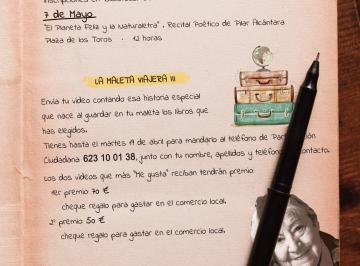 7 de Mayo
"El Planeta Feliz y la Naturaletra". Recital Poético de Pilar Alcántara
Plaza de los Toros - 12 horas
LA MALETA VIAJERA III
Envía tu vídeo contando esa historia especial
que nace al guardar en tu maleta los libros que
has elegidos.
Tienes hasta el martes 19 de abril para mandarlo al teléfono de
Ciudadana 623 10 01 38, junto con tu nombre, apellidos y teléfono contacto.
Los dos vídeos que más "Me gusta" reciban tendrán premio:
1er premio 70 €
cheque regalo para gastar en el comercio local.
2º premio 50 €
cheque regalo para gastar en el comercio local.